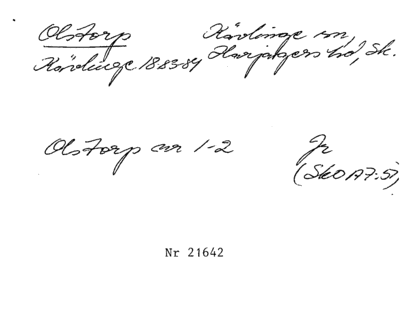 Olstorp Kävlinge sn,
Kävlinge 1883-84 Harjagers hd, Sk.
Olstorp nr 1-2 Jr
(SkO A7:57)
Nr 21642